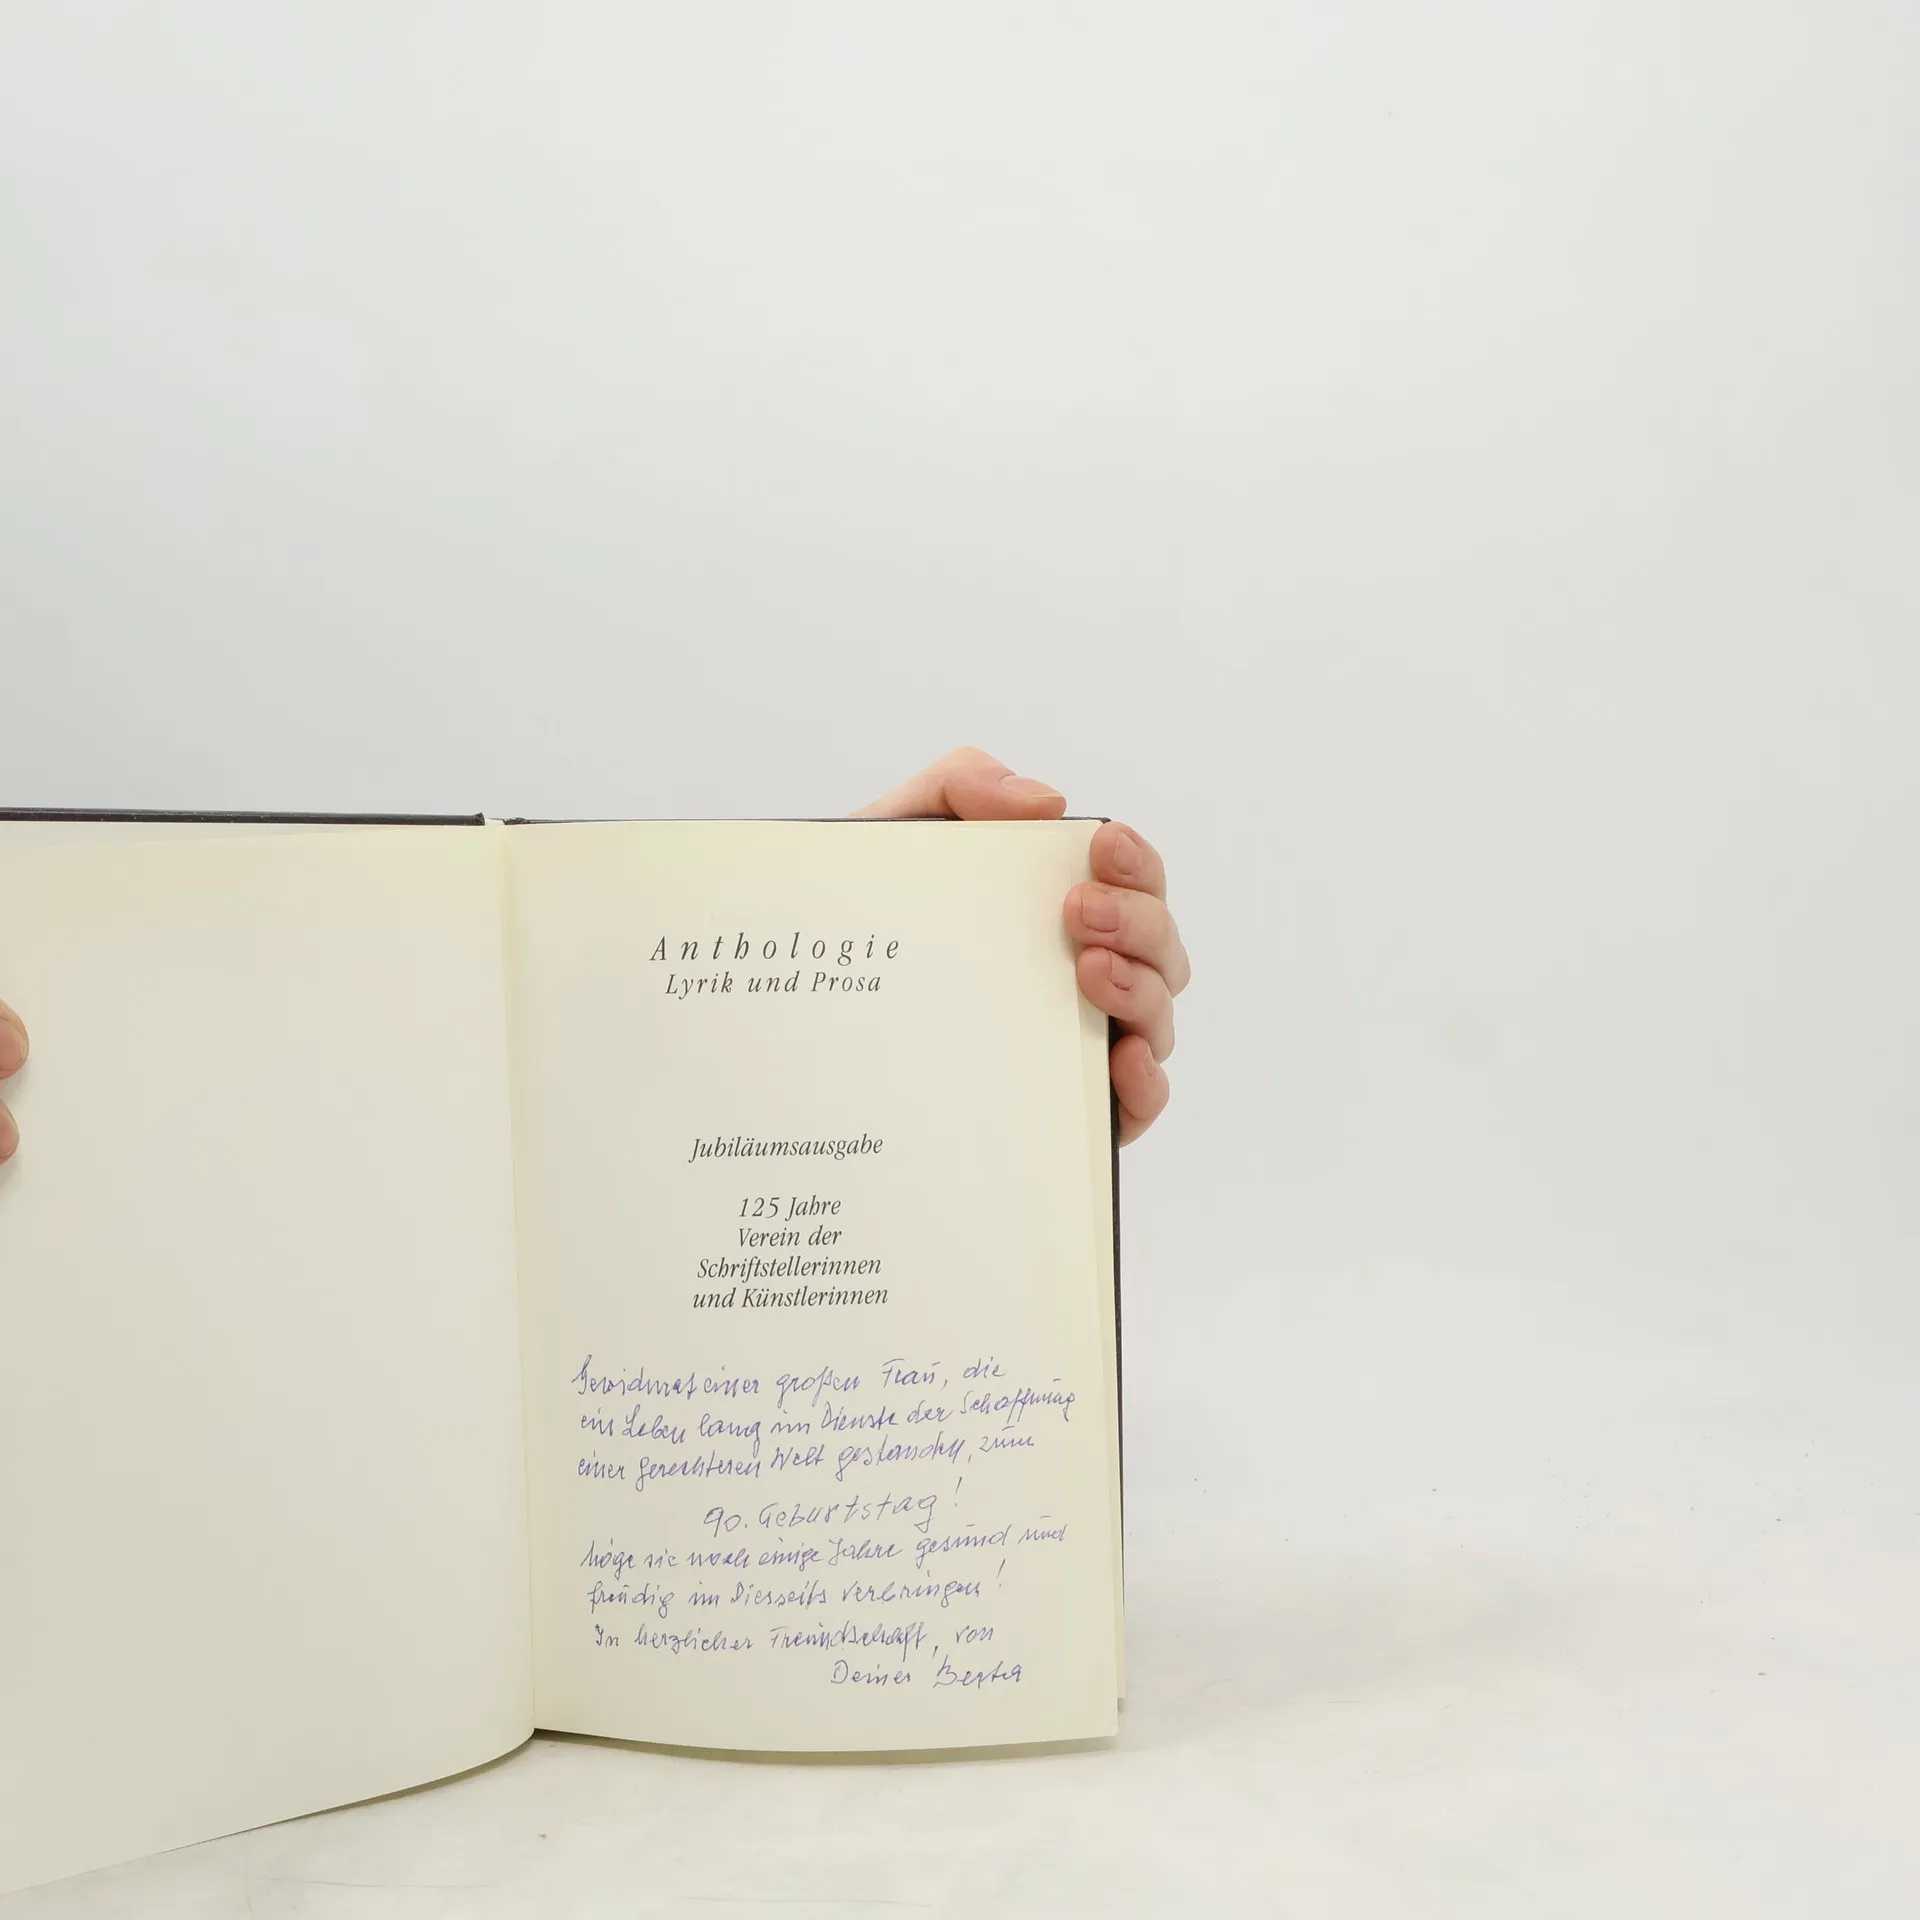 Anthologie
Lyrik und Prosa
Jubiläumsausgabe
125 Jahre
Verein der
Schriftstellerinnen
und Künstlerinnen
Gewidmet einer großen Frau, die
ein Leben lang im Dienste der Schaffung
einer gerechteren Welt gestanden, zum
90. Geburtstag!
Möge sie noch einige Jahre gesund und
freudig im Diesseits verbringen!
In herzlicher Freundschaft, von
Deiner Berta